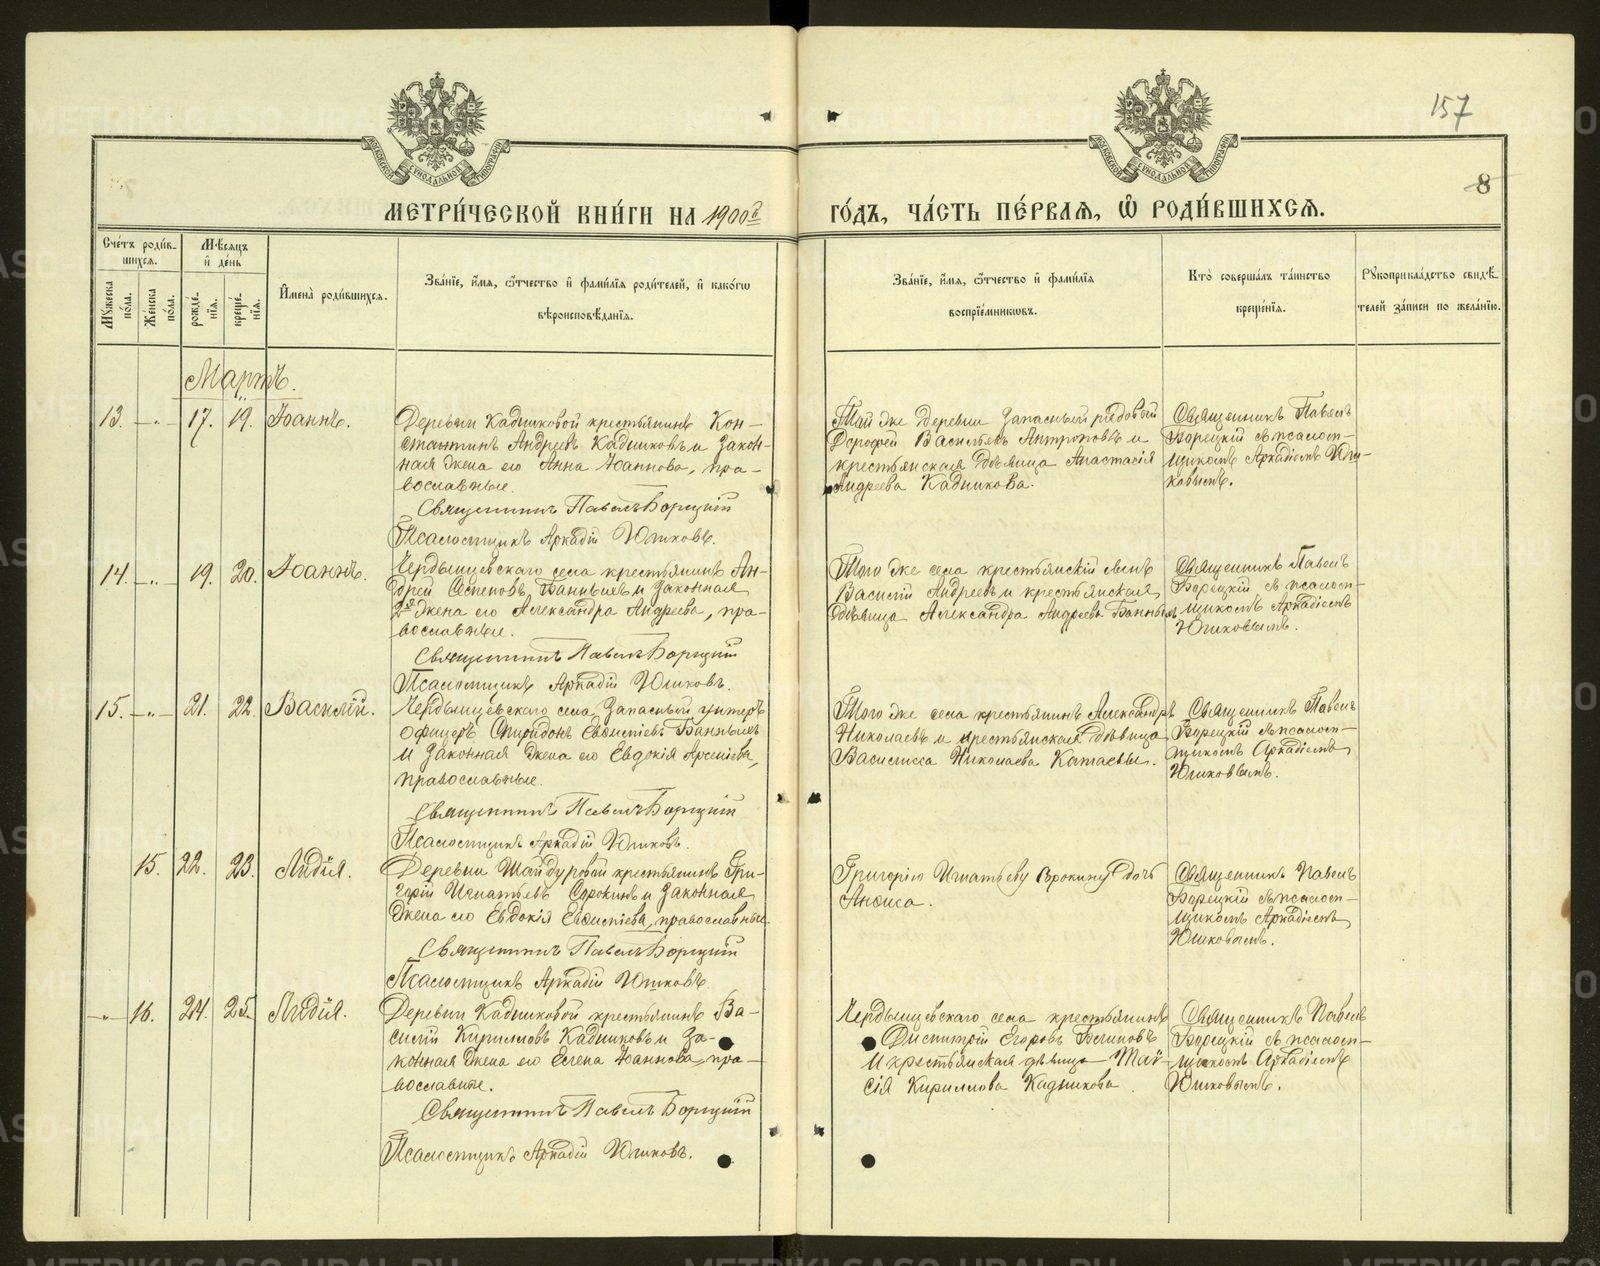 157
8
МЕТРИ́ЧЕСКОЙ КНИ́ГИ НА 1900й ГО́ДЪ, ЧА́СТЬ ПЕ́РВАЯ, Ѽ РОДИ́ВШИХСЯ.
МОСКОВСКОЙ СѴНОДАЛЬНОЙ ТИПОГРАФІИ
МОСКОВСКОЙ СѴНОДАЛЬНОЙ ТИПОГРАФІИ
Сче́тъ роди́в-
шихся.
Му́жеска по́ла.
Же́нска по́ла.
Мѣ́сяцъ
и҆ де́нь
рожде́-
нїя.
креще́-
нїя.
И҆мена̀ роди́вшихся.
Зва́нїе, и҆́мя, ѻ҆́тчество и҆ фами́лїя роди́телей, и҆ како́гѡ
вѣроисповѣ́данїя.
Зва́нїе, и҆́мя, ѻ҆́тчество и҆ фами́лїя
воспрїе́мникѡвъ.
Кто̀ соверша́лъ та́инство
креще́нїя.
Рꙋкоприкла́дство свидѣ́-
телей за́писи по жела́нїю.
Мартъ.
13. - „ - 17. 19. Іоаннъ.
Деревни Кадниковой крестьянинъ Кон-
стантинъ Андреевъ Кадниковъ и закон-
ная жена его Анна Іоаннова, пра-
вославные.
Священникъ Павелъ Борецкій
Псаломщикъ Аркадій Юшковъ.
Той же деревни запасный рядовой
Дорофей Васильевъ Антроповъ и
крестьянская дѣвица Анастасія
Андреева Кадникова.
Священникъ Павелъ
Борецкій съ псалом-
щикомъ Аркадіемъ Юш-
ковымъ.
14. - „ - 19. 20. Іоаннъ.
села крестьянинъ Ан-
дрей Банныхъ и законная
2я жена его Александра Андреева, пра-
вославные.
Священникъ Павелъ Борецкій
Псаломщикъ Аркадій Юшковъ.
Того же села крестьянскій сынъ
Василій Андреевъ и крестьянская
дѣвица Александра Андреева Банныхъ
Священникъ Павелъ
Борецкій съ псалом-
щикомъ Аркадіемъ
Юшковымъ.
15. - „ - 21. 22. Василій.
села запасный унтеръ
офицеръ Спиридонъ Банныхъ
и законная жена его Евдокія Арсеніева,
православные.
Священникъ Павелъ Борецкій
Псаломщикъ Аркадій Юшковъ.
Того же села крестьянинъ Александръ
Николаевъ и крестьянская дѣвица
Василисса Николаева Катаевы.
Священникъ Павелъ
Борецкій съ псалом-
щикомъ Аркадіемъ
Юшковымъ.
15. 22. 23. Лидія.
Деревни Шайдуровой крестьянинъ Гри-
горій Игнатьевъ Сорокинъ и законная
жена его Евдокія православные.
Священникъ Павелъ Борецкій
Псаломщикъ Аркадій Юшковъ.
Григорію Игнатьеву Сорокину дочь
Анфиса.
Священникъ Павелъ
Борецкій съ псалом-
щикомъ Аркадіемъ
Юшковымъ.
- „ - 16. 24. 25. Лидія.
Деревни Кадниковой крестьянинъ Ва-
силій Кирилловъ Кадниковъ и за-
конная жена его Елена Іоаннова, пра-
вославные.
Священникъ Павелъ Борецкій
Псаломщикъ Аркадій Юшковъ.
села крестьянинъ
Димитрій Егоровъ
и крестьянская дѣвица Таи-
сія Кириллова Кадникова
Священникъ Павелъ
Борецкій съ псалом-
щикомъ Аркадіемъ
Юшковымъ.
METRIKI.GASO-URAL.RU